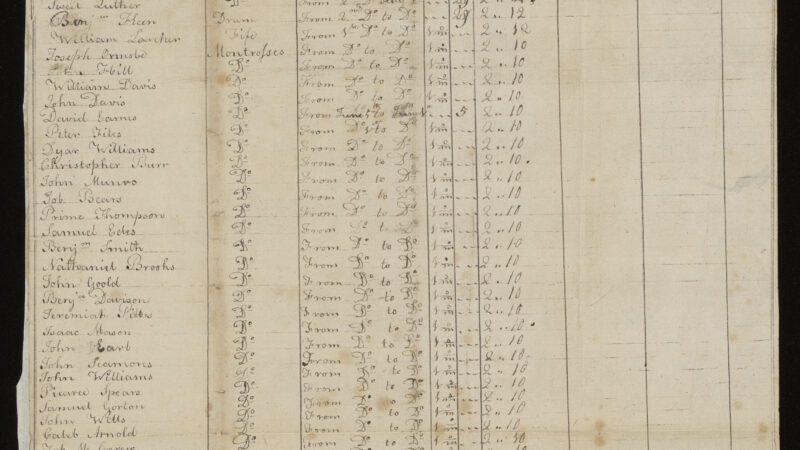 Sweet Luther Do From 2nd
Benjm. Fleen Drum From 2nd Do to Do 29 2 " 12
William Larcher Fife From 1st Do to Do 1 m 2 " 12
Joseph Ormsbe Montrosses From Do to Do 1 m 2 " 10
Hill Do From Do to Do 1 m 2 " 10
William Davis Do From Do to Do 1 m 2 " 10
John Davis Do From Do to Do 1 m 2 " 10
David Eames Do From June to 5 2 " 10
Peter Files Do From Do to Do 1 m 2 " 10
Dyar Williams Do From Do to Do 1 m 2 " 10
Christopher Burr Do From Do to Do 1 m 2 " 10
John Munro Do From Do to Do 1 m 2 " 10
Job Bears Do From Do to Do 1 m 2 " 10
Prime Thompson Do From Do to Do 1 m 2 " 10
Samuel Edes Do From Do to Do 1 m 2 " 10
Benjm Smith Do From Do to Do 1 m 2 " 10
Nathaniel Brooks Do From Do to Do 1 m 2 " 10
John Goold Do From Do to Do 1 m 2 " 10
Benjm Davison Do From Do to Do 1 m 2 " 10
Jeremiah Do From Do to Do 1 m 2 " 10
Isaac Mason Do From Do to Do 1 m 2 " 10
John Earl Do From Do to Do 1 m 2 " 10
John Seamons Do From Do to Do 1 m 2 " 10
John Williams Do From Do to Do 1 m 2 " 10
Pearce Spears Do From Do to Do 1 m 2 " 10
Samuel Gorton Do From Do to Do 1 m 2 " 10
John Wells Do From Do to Do 1 m 2 " 10
Caleb Arnold Do From Do to Do 1 m 2 " 10